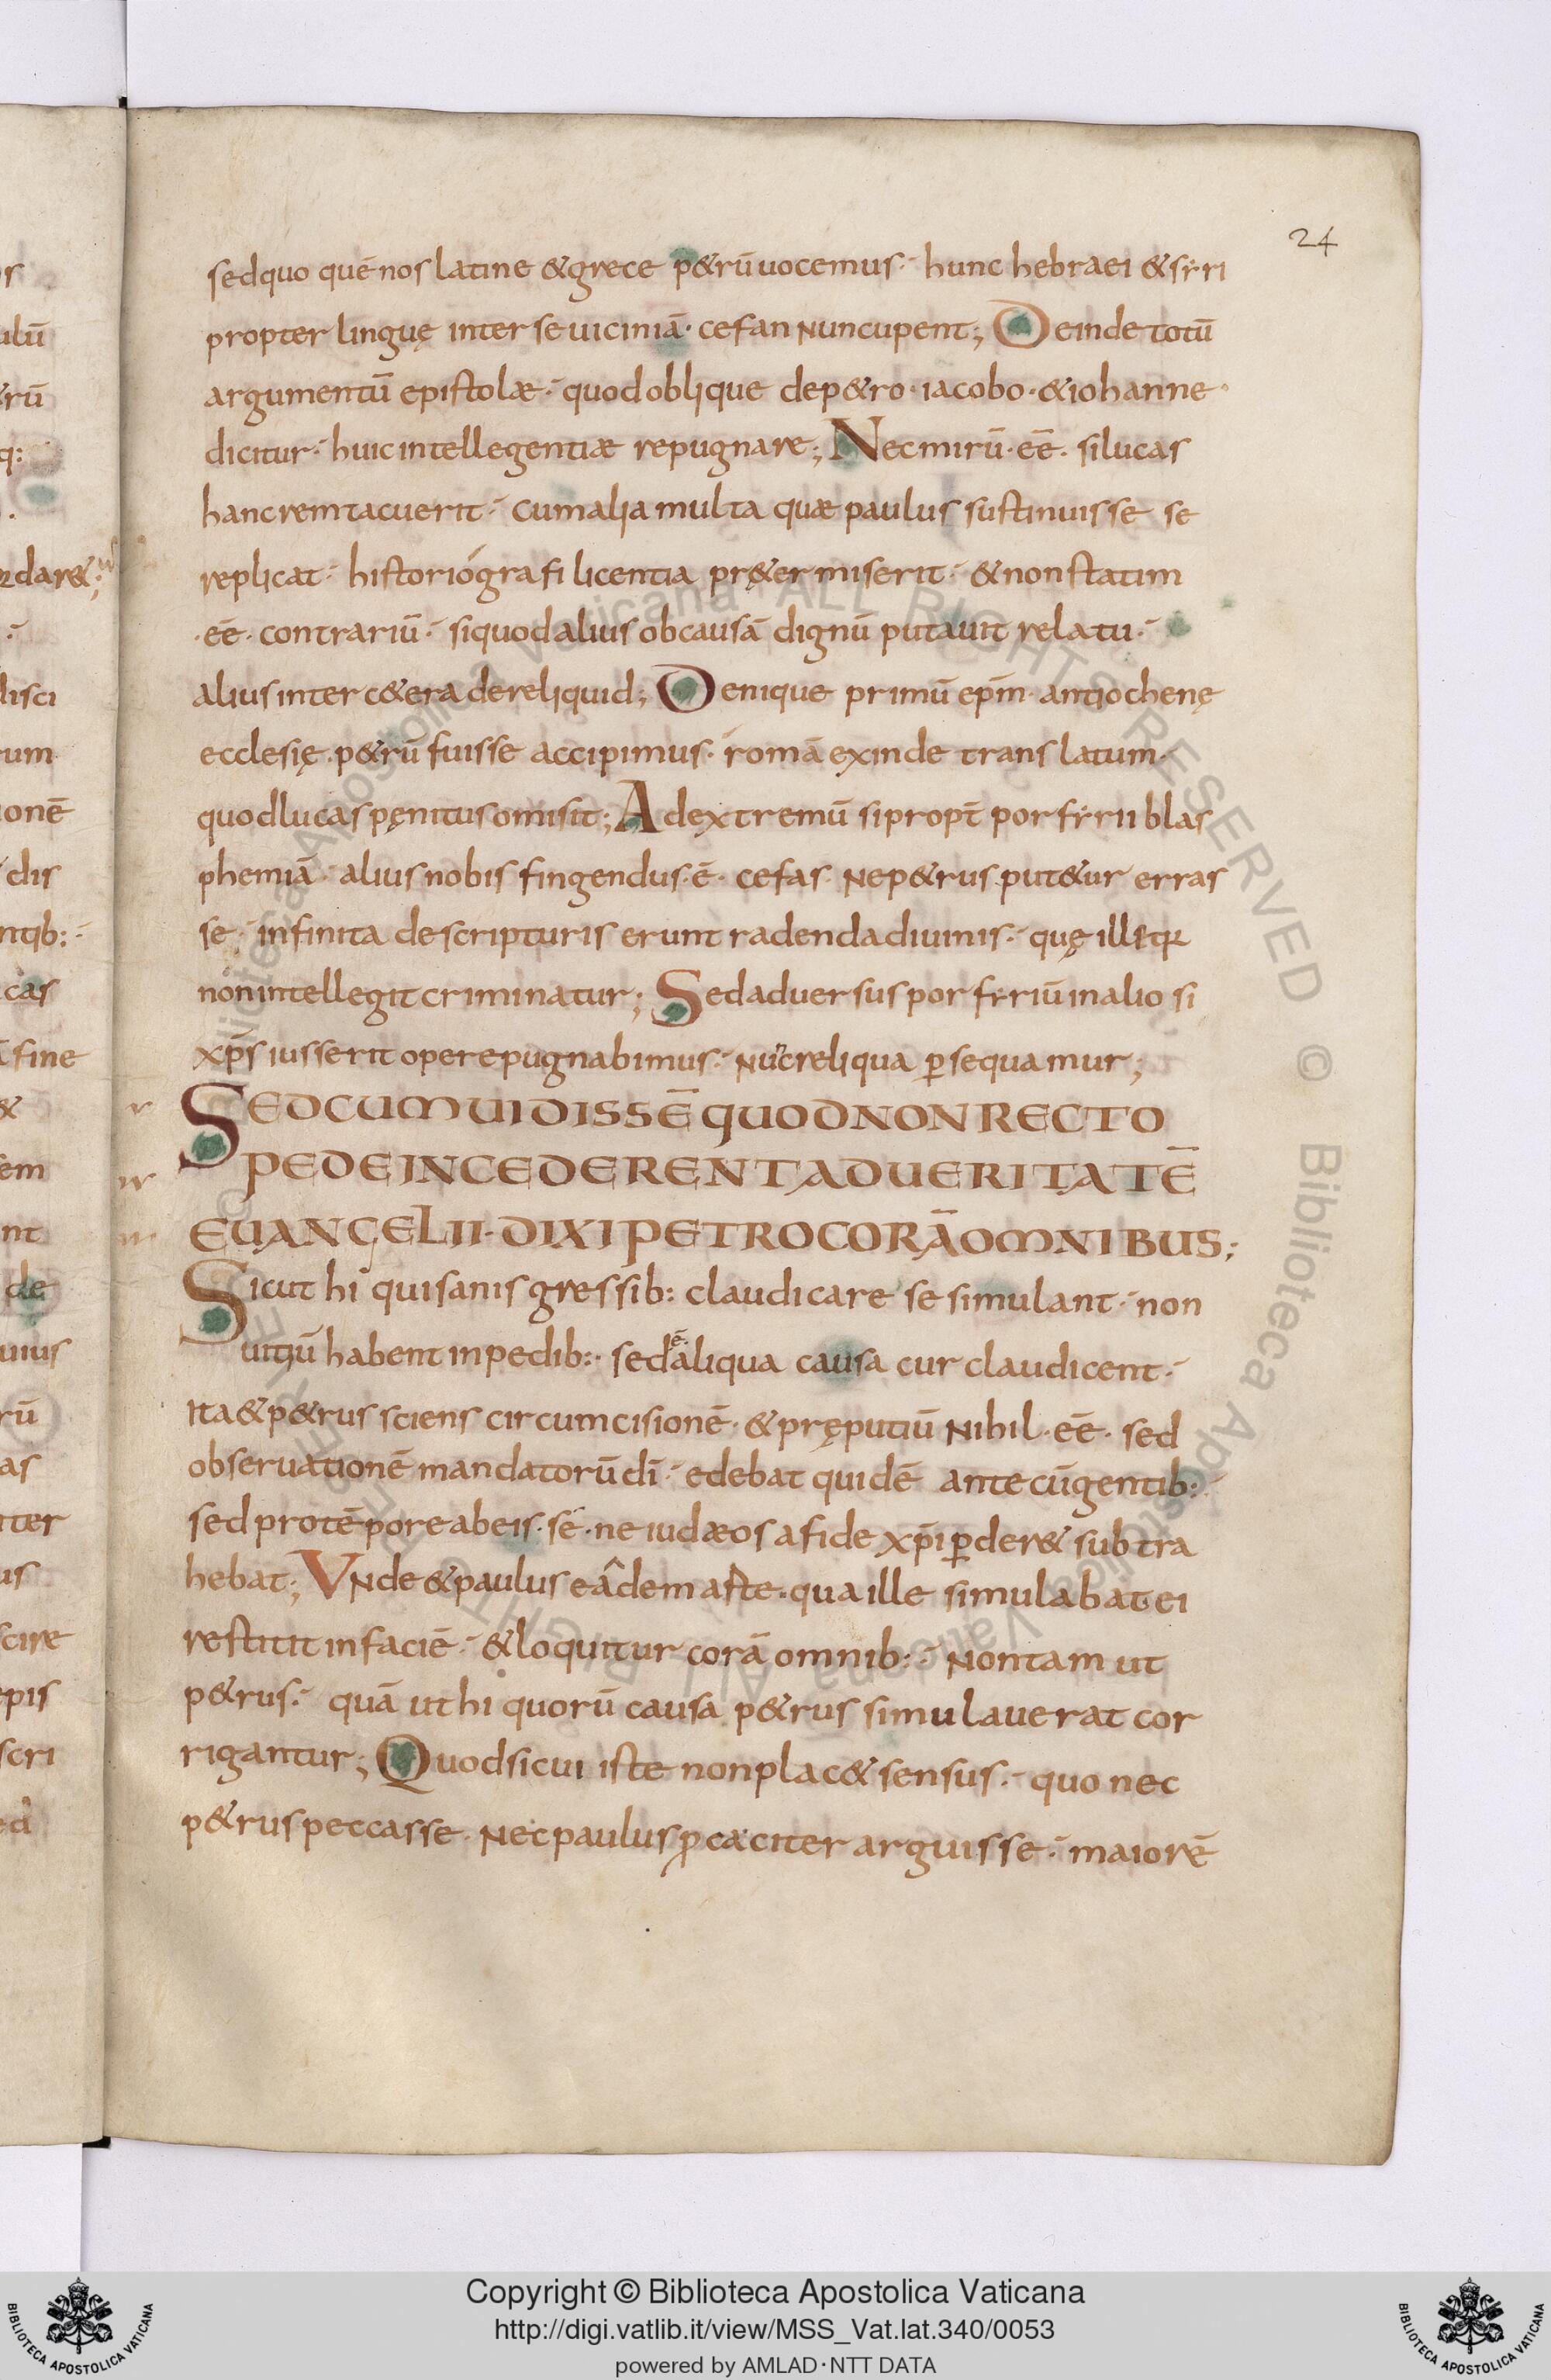 24
sed quo quē nos latine & grece p&rū uocemus· hunc hebraei & sẏri
propter linguę inter se uiciniā· cefan nuncupent; Deinde totū
argumentū epistolæ· quod oblique de p&ro· iacobo· & iohanne·
dicitur· huic intellegentiæ repugnare; Nec mirū· eē· si lucas
hanc rem tacuerit· cum alia multa quæ paulus sustinuisse se
replicat· historiografi licentia pr&ermiserit· & non statim
·eē· contrariū· si quod alius ob causā dignū putauit relatu·
alius inter c&era dereliquid; Denique primū ep̄m antiochenę
ecclesię· p&rū fuisse accipimus· romā exinde translatum·
quod lucas pęnitus omisit; Ad extremū si propt̄ porfẏrii blas
phemiā· alius nobis fingendus· ē· cefas· ne p&rus put&ur erras
se· infinita de scripturis erunt radenda diuinis· quę ille qr
non intellegit criminatur; Sed aduersus porfẏriū in alio si
xp̄s iusserit opere pugnabimus· nūc reliqua p̄sequamur;
SED CUM UIDISSĒ QUOD NON RECTO
PEDE INCEDERENT AD UERITATĒ
EUANGELII· DIXI PETRO CORĀ OMNIBUS;
Sicut hi qui sanis gressib: claudicare se simulant· non
uitiū habent in pedib:· sed ē· aliqua causa cur claudicent·
ita & p&rus sciens circumcisionē· & pręputiū nihil· eē· sed
obseruationē mandatorū dī· edebat quidē ante cū gentib:·
sed pro tēpore ab eis· sē· ne iudæos a fide xp̄i p̄der& subtra
hebat; Vnde & paulus eadem arte· qua ille simulabat ei
restitit in faciē· & loquitur corā omnib:· non tam ut
p&rus· quā ut hi quorū causa p&rus simulauerat cor
rigantur; Quod si cui iste non plac& sensus· quo nec
p&rus peccasse· nec paulus p̄caciter arguisse· maiorē
Copyright © Biblioteca Apostolica Vaticana
http://digi.vatlib.it/view/MSS_Vat.lat.340/0053
powered by AMLAD·NTT DATA
BIBLIOTECA APOSTOLICA VATICANA
BIBLIOTECA APOSTOLICA VATICANA